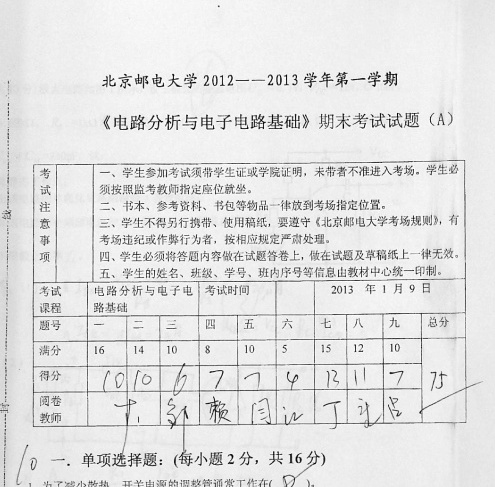 北京邮电大学2012——2013学年第一学期
《电路分析与电子电路基础》期末考试试题（A）
考试注意事项
一、学生参加考试须带学生证或学院证明，未带者不准进入考场。学生必
须按照监考教师指定座位就坐。
二、书本、参考资料、书包等物品一律放到考场指定位置。
三、学生不得另行携带、使用稿纸，要遵守《北京邮电大学考场规则》，有
考场违纪或作弊行为者，按相应规定严肃处理。
四、学生必须将答题内容做在试题答卷上，做在试题及草稿纸上一律无效。
五、学生的姓名、班级、学号、班内序号等信息由教材中心统一印制。
考试课程 电路分析与电子电路基础 考试时间 2013 年 1 月 9 日
题号 一 二 三 四 五 六 七 八 九 总分
满分 16 14 10 8 10 5 15 12 10
得分 10 10 6 7 7 4 13 11 7 75
阅卷教师
10 一．单项选择题：(每小题 2 分，共 16 分)
1. 为了减少散热，开关电源的调整管通常工作在(